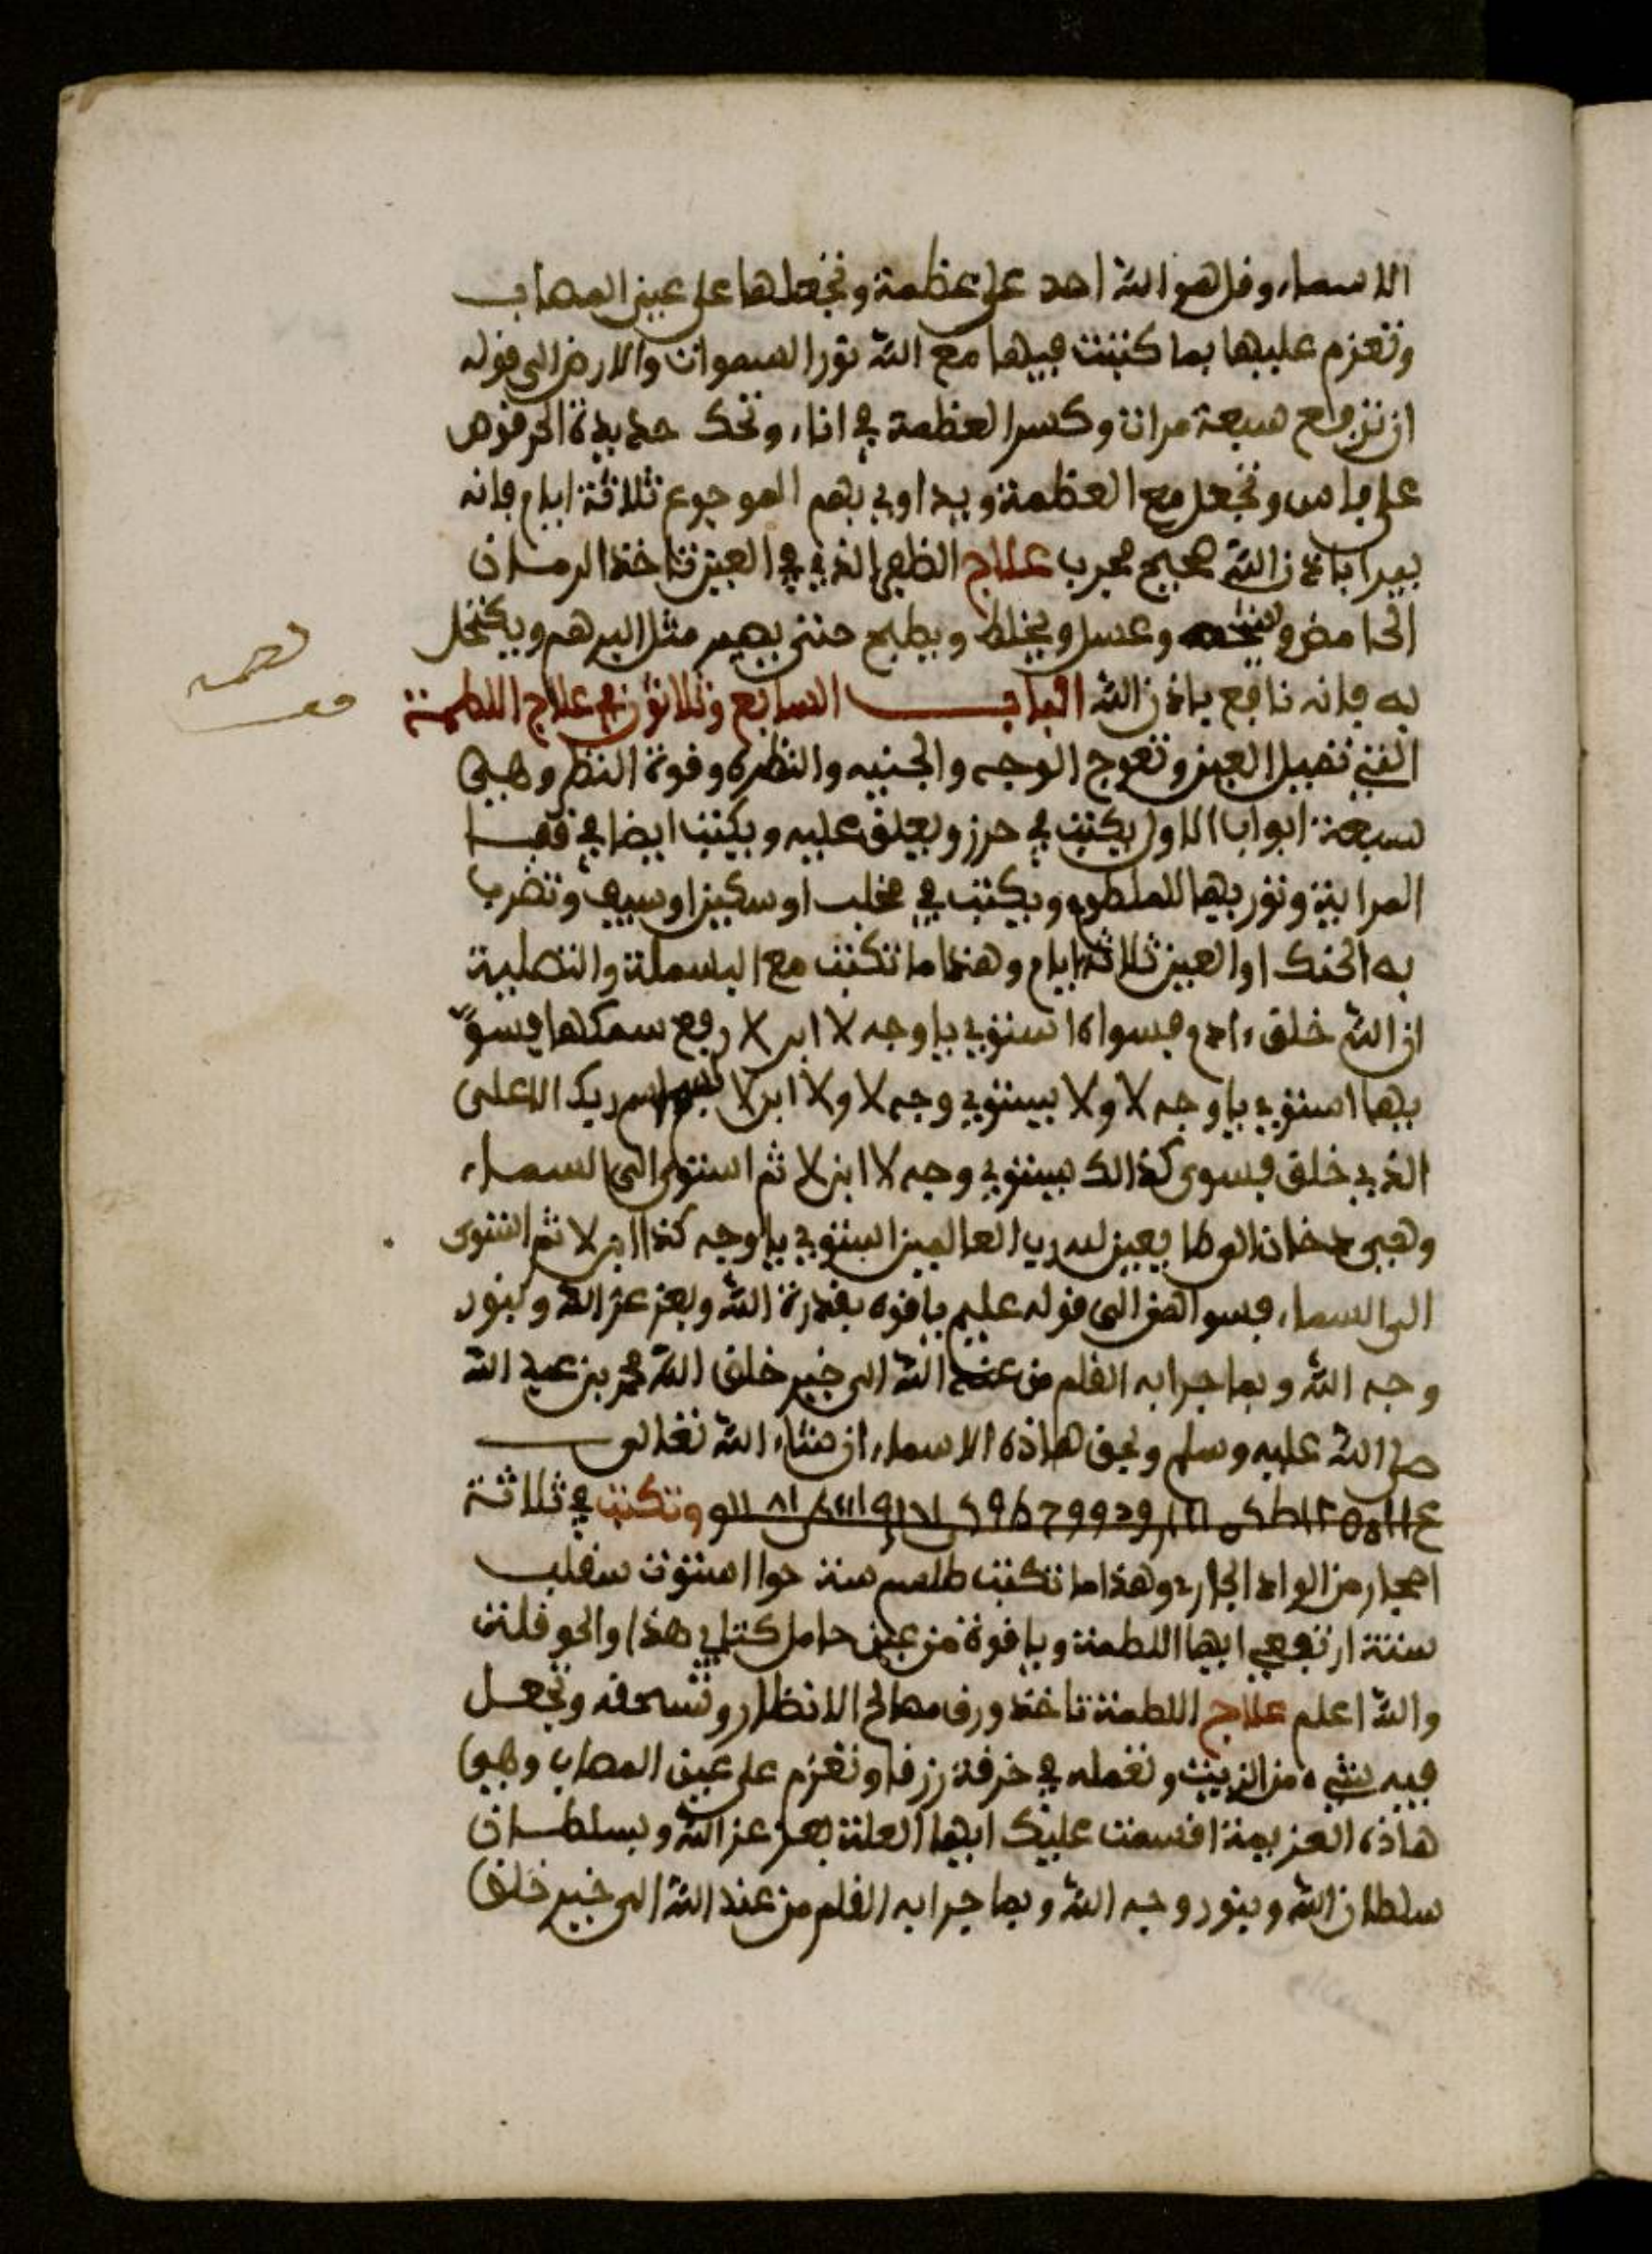 الاسماء وقل هو الله احد على عظمة وتجعلها على عين المصاب
وتعزم عليها بما كتبت فيها مع الله نور السموات والارض الى قوله
ان ترفع سبعة مرات وكسر العظمة في اناء وتحك حديدة الحرقوص
على فاس وتجعل مع العظمة ويداوي بهم الموجوع ثلاثة ايام فانه
يبرا باذن الله صحيح مجرب علاج الظفر الذي في العين تاخذ الرمان
الحامض وعسل ويخلط ويطبخ حتى يصير مثل المرهم ويكتحل
به فانه نافع باذن الله الباب السابع وثلاثون في علاج اللطمة
التي تقبل العين وتعوج الوجه والجنبيه والنظره وقوة النظر وهي
سبعة ابواب الاول يكتب في حرز ويعلق عليه ويكتب ايضا في قفا
المراية وتوريها للملطوم ويكتب في مخلب او سكين او سيف وتضرب
به الحنك او العين ثلاثة ايام وهذا ما تكتب مع البسملة والتصلية
ان الله خلق ءادم فسواه استوي يا وجه لا ابن لا رفع سمكها فسو
يها استوي يا وجه لا ولا يستوي وجه لا ولا ابن لا سبح اسم ربك الاعلى
الذي خلق فسوى كذالك يستوي وجه لا ابن لا ثم استوى الى السماء
وهي دخان الى طايعين لله رب العالمين استوي يا وجه كذا ابن لا ثم استوى
الى السماء فسواهن الى قوله عليم يا قوه بقدرة الله وبعز عز الله وبنور
وجه الله وبما جرا به القلم من عند الله الى خير خلق الله محمد بن عبد الله
صلى الله عليه وسلم وبحق هاذه الاسماء ان شاء الله تعالى
وتكتب في ثلاثة
احجار من الواد الجارد وهذا ما تكتب طلسم ستة حوا استوت سقلب
ستة ارتفعي ايها اللطمة ويا قوة من عين حامل كتابي هذا والحوقلة
والله اعلم علاج اللطمة تاخذ ورق مصالح الانظار وتسحقه وتجعل
فيه شيء من الزيت وتعمله في خرقة زرقا وتعزم على عين المصاب وهي
هاذه العزيمة اقسمت عليك ايها العلة بعز عز الله وبسلطان
سلطان الله وبنور وجه الله وبما جرا به القلم من عند الله الى خير خلق